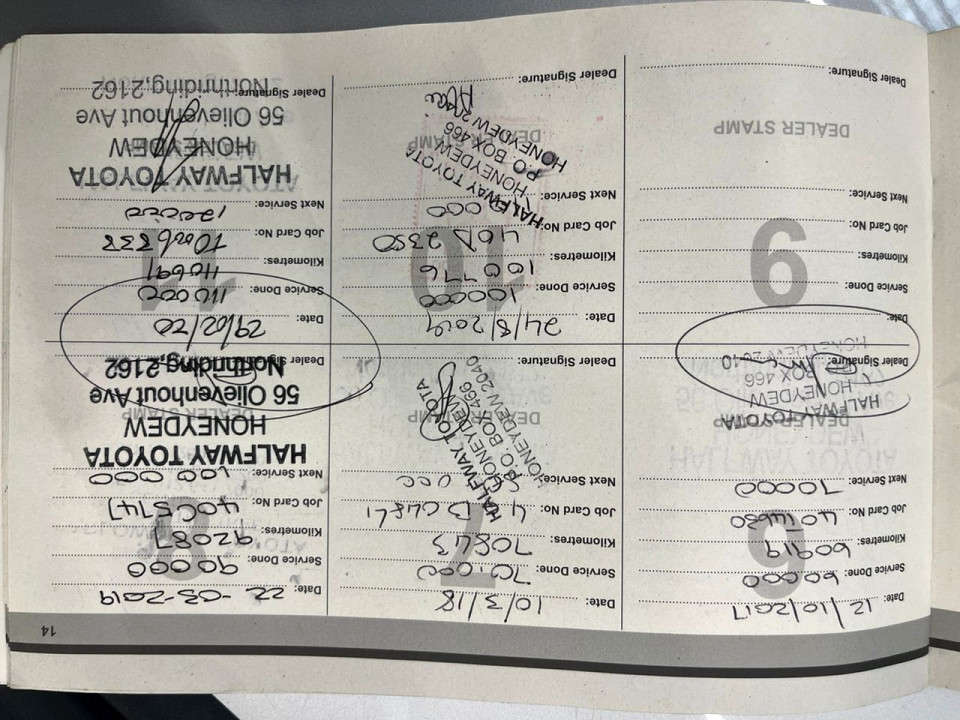 14
6
Date: 12/10/2017
Service Done: 60000
Kilometres: 60919
Job Card No: 4014630
Next Service: 70000
DEALER STAMP
HALFWAY TOYOTA
HONEYDEW
BOX 466
HONEYDEW 2040
Dealer Signature:
7
Date: 10/3/18
Service Done: 70,000
Kilometres: 70843
Job Card No:
Next Service:
DEALER STAMP
HALFWAY TOYOTA
HONEYDEW
P.O. BOX 466
HONEYDEW 2040
Dealer Signature:
8
Date: 22-03-2019
Service Done: 90000
Kilometres: 92087
Job Card No: 40C5747
Next Service: 100 000
DEALER STAMP
HALFWAY TOYOTA
HONEYDEW
56 Olievenhout Ave
Northriding,2162
Dealer Signature:
9
Date:
Service Done:
Kilometres:
Job Card No:
Next Service:
DEALER STAMP
Dealer Signature:
10
Date: 24/8/2019
Service Done: 100000
Kilometres: 100776
Job Card No: 40D2350
Next Service: 000
DEALER STAMP
HALFWAY TOYOTA
HONEYDEW
P.O. BOX 466
HONEYDEW 2040
Dealer Signature:
11
Date: 29/02/20
Service Done: 110000
Kilometres: 110691
Job Card No:
Next Service: 120000
HALFWAY TOYOTA
HONEYDEW
56 Olievenhout Ave
Northriding,2162
Dealer Signature: